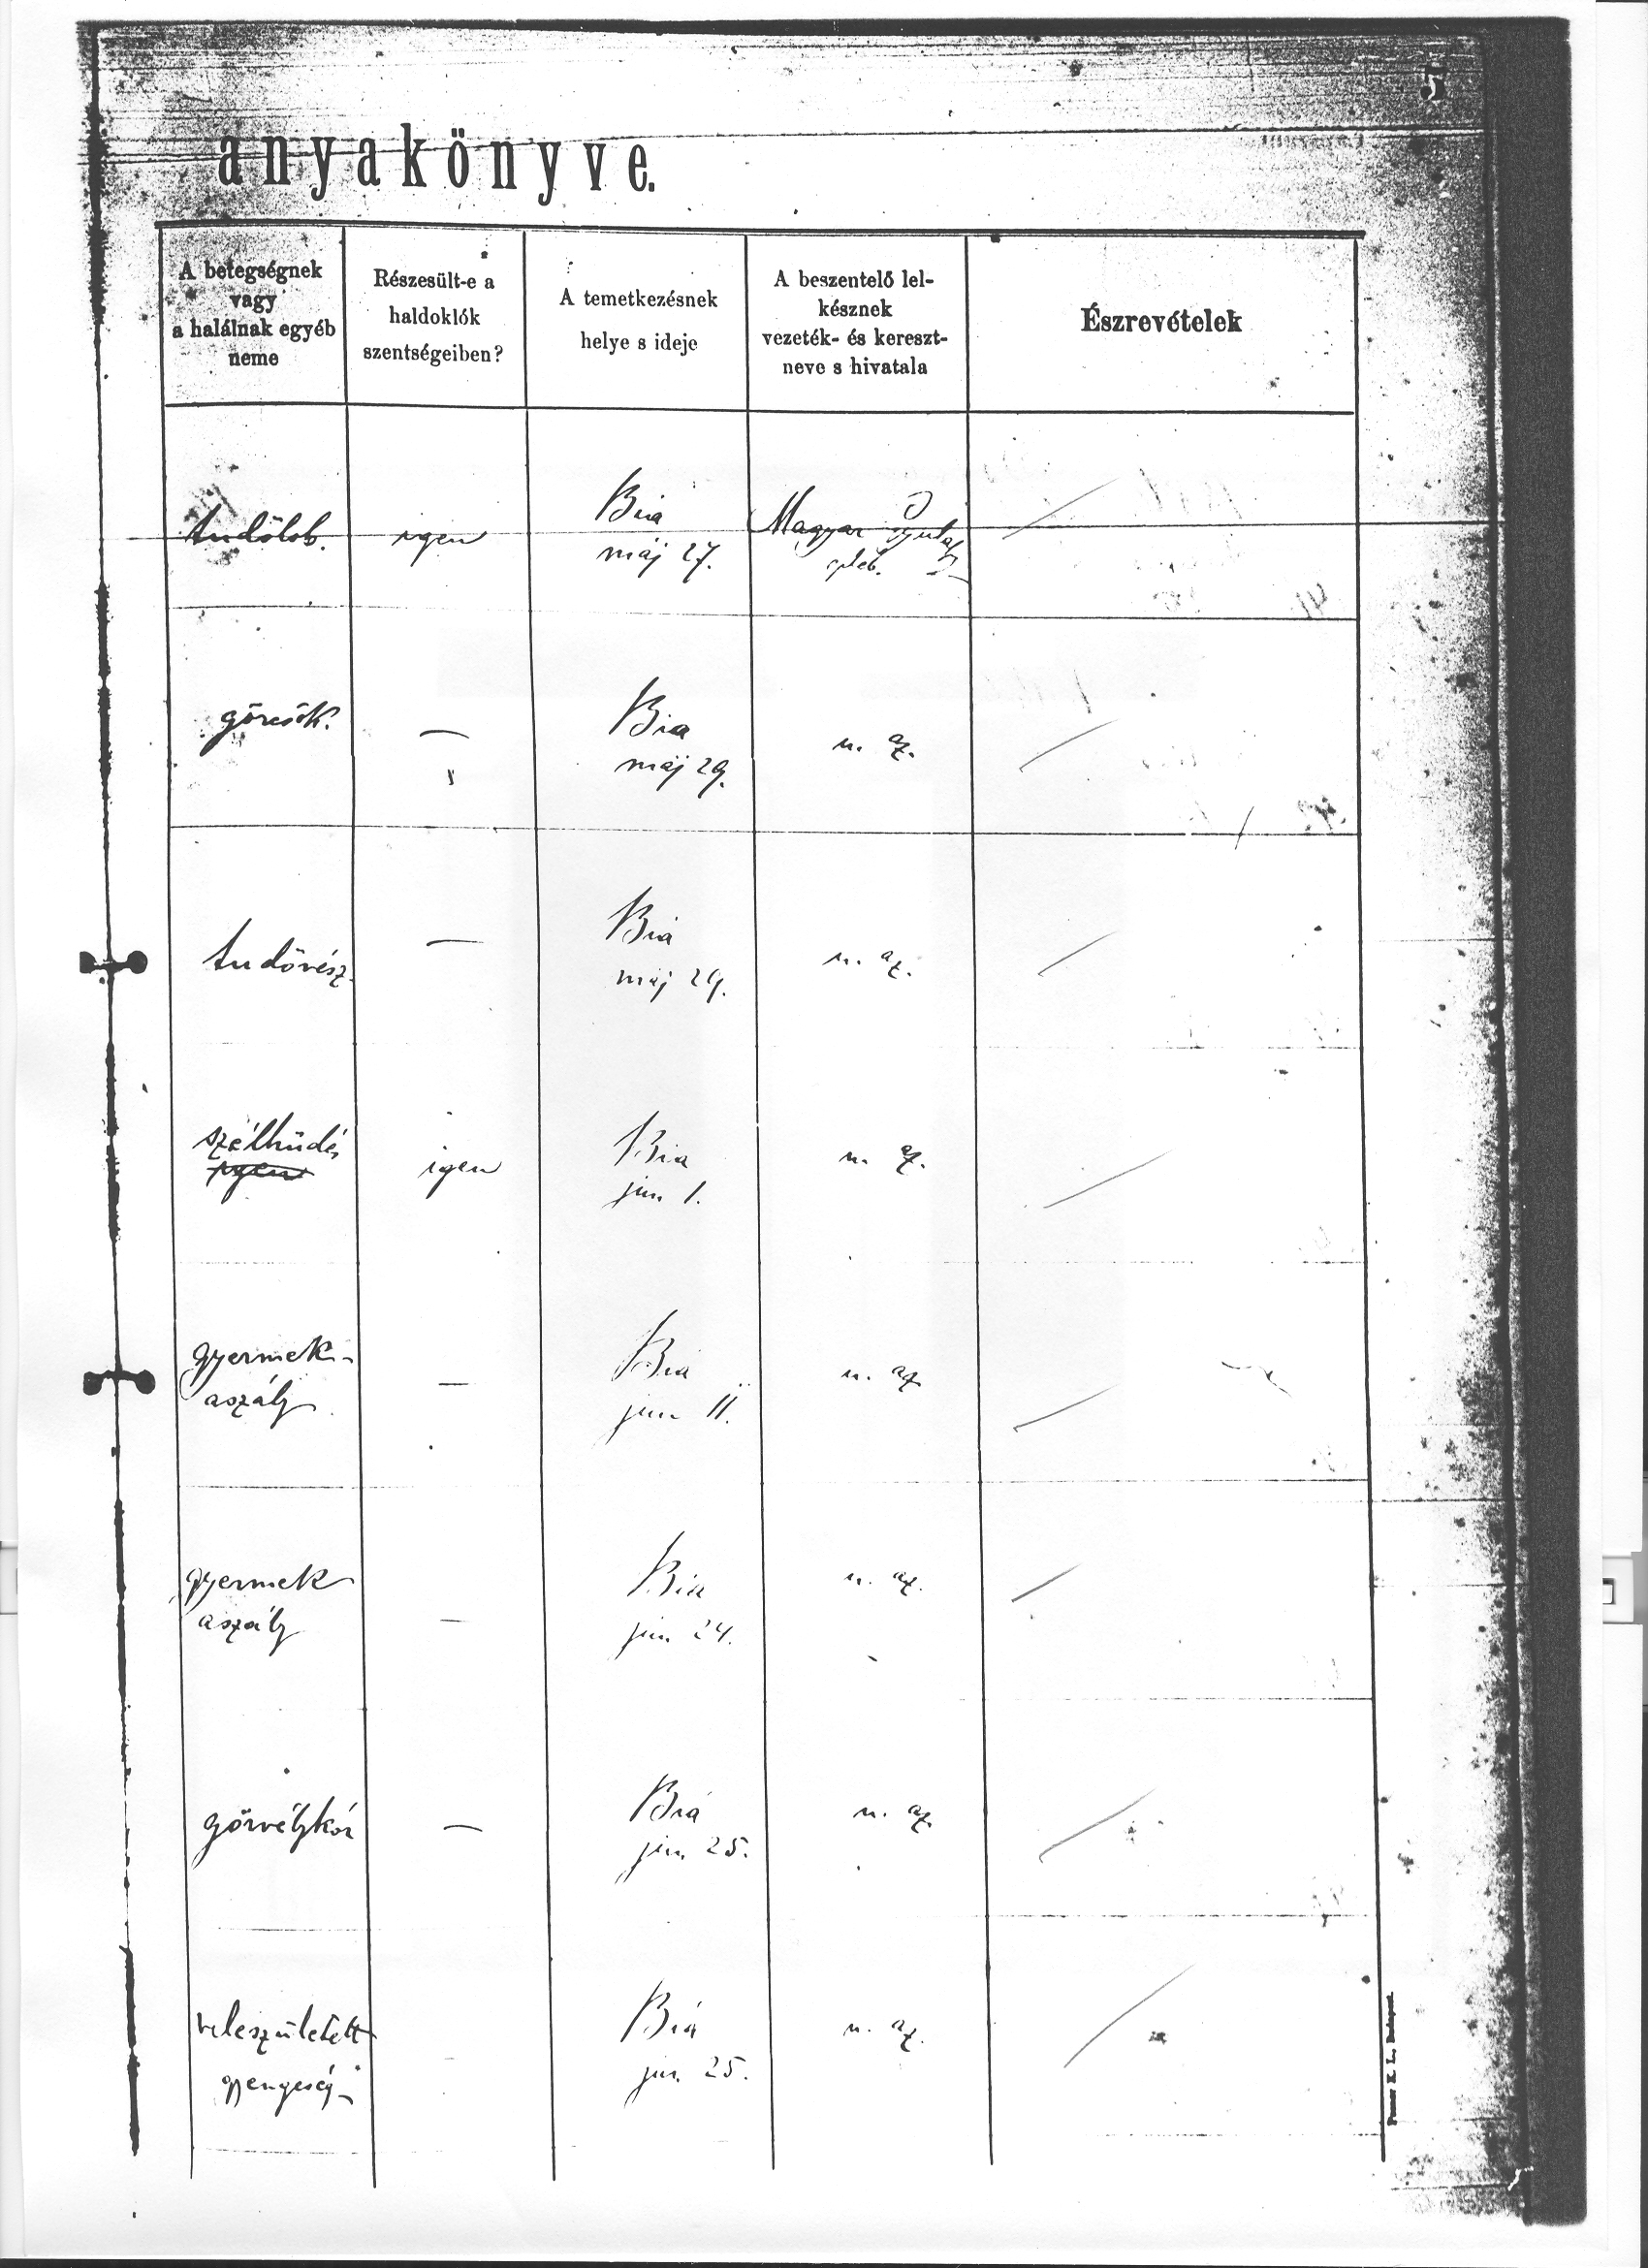 5
anyakönyve.
A betegségnek
vagy
a halálnak egyéb
neme
Részesült-e a
haldoklók
szentségeiben?
A temetkezésnek
helye s ideje
A beszentelő lel-
késznek
vezeték- és kereszt-
neve s hivatala
Észrevételek
tudőlob.
igen
Bia
máj 27.
Magyar Gyula
pleb.
görcsök.
—
Bia
máj 29.
u. az.
tudővész.
—
Bia
máj 29.
u. az.
szélhüdés
igen
igen
Bia
jun 1.
u. az.
gyermek-
aszály
—
Bia
jun 11.
u. az
gyermek
aszály
—
Bia
jun. 24.
u. az.
görvélykór
—
Biá
jun. 25.
u. az.
veleszületett
gyengeség
-
Biá
jun. 25.
u. az.
Posner K. L., Budapest.